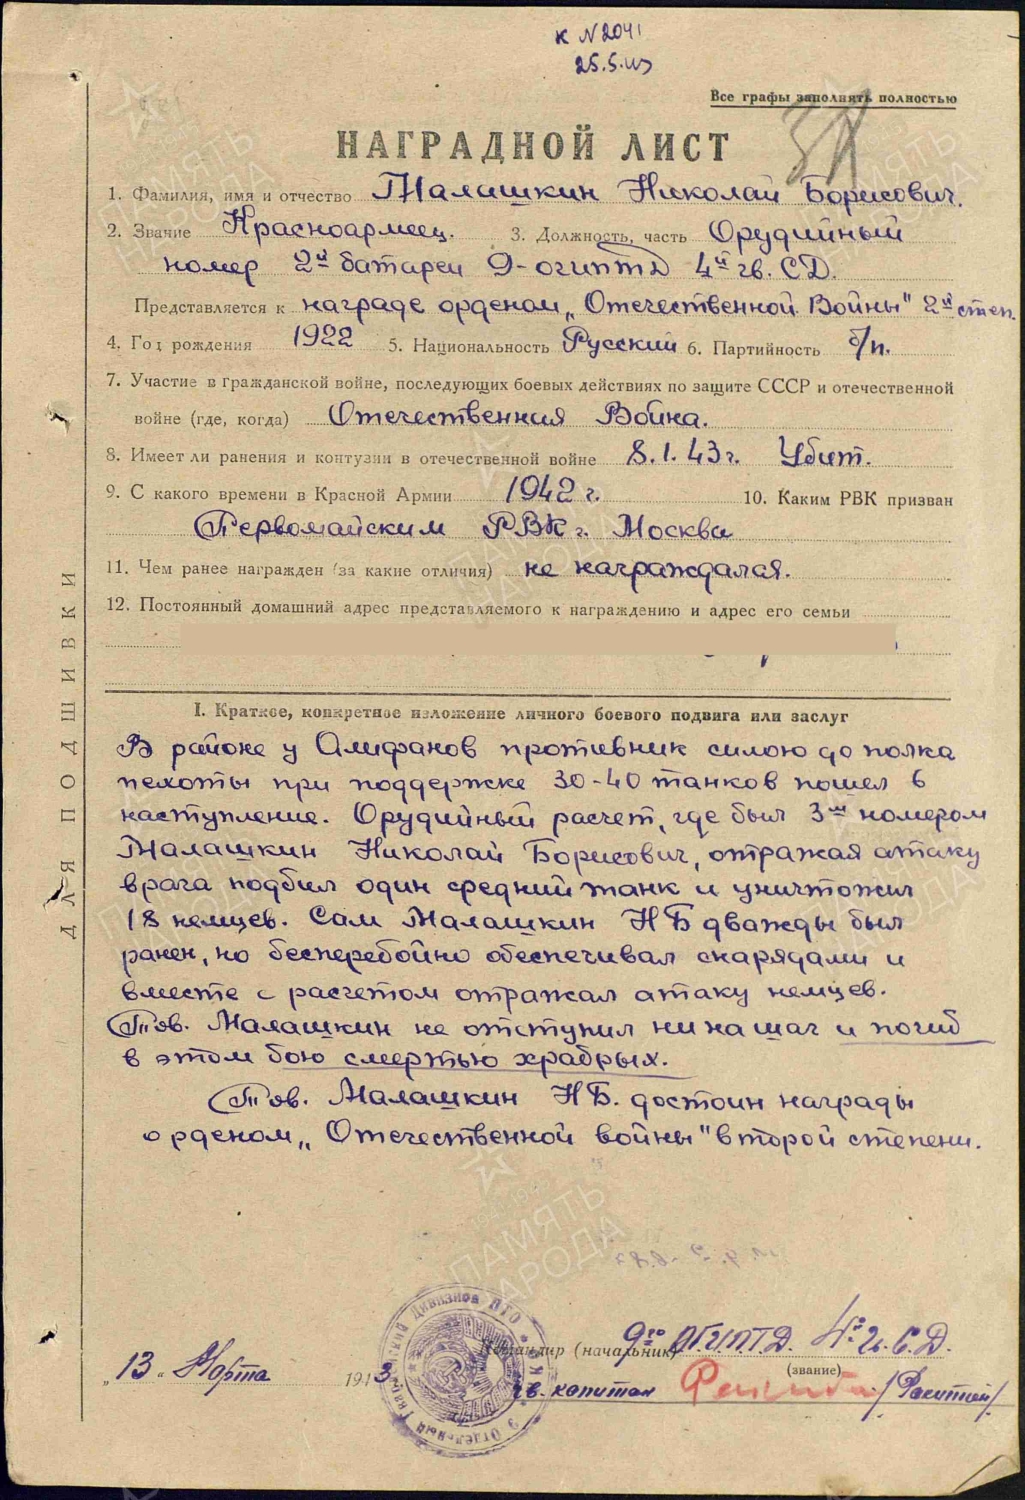 к №2041
25.5.43
Все графы заполнять полностью
НАГРАДНОЙ ЛИСТ
1. Фамилия, имя и отчество Малашкин Николай Борисович.
2. Звание Красноармеец. 3. Должность, часть Орудийный
номер 2й батареи 9-огиптд 4й гв. СД.
Представляется к награде орденом „Отечественной Войны" 2й степ.
4. Год рождения 1922 5. Национальность Русский 6. Партийность б/п.
7. Участие в гражданской войне, последующих боевых действиях по защите СССР и отечественной
войне (где, когда) Отечественная Война.
8. Имеет ли ранения и контузии в отечественной войне 8.1.43 г. Убит.
9. С какого времени в Красной Армии 1942 г. 10. Каким РВК призван
Первомайским РВК г. Москва
11. Чем ранее награжден (за какие отличия) не награждался.
12. Постоянный домашний адрес представляемого к награждению и адрес его семьи
I. Краткое, конкретное изложение личного боевого подвига или заслуг
В районе у Алифанов противник силою до полка
пехоты при поддержке 30-40 танков пошел в
наступление. Орудийный расчет, где был 3м номером
Малашкин Николай Борисович, отражая атаку
врага подбил один средний танк и уничтожил
18 немцев. Сам Малашкин Н Б дважды был
ранен, но бесперебойно обеспечивал снарядами и
вместе с расчетом отражал атаку немцев.
Тов. Малашкин не отступил ни на шаг и погиб
в этом бою смертью храбрых.
Тов. Малашкин Н Б. достоин награды
орденом „Отечественной войны" второй степени.
Командир (начальник) 9го ОГИПТД 4й гв. С.Д.
(звание)
„13" Марта 1943
гв. капитан
ДЛЯ ПОДШИВКИ
ПАМЯТЬ НАРОДА